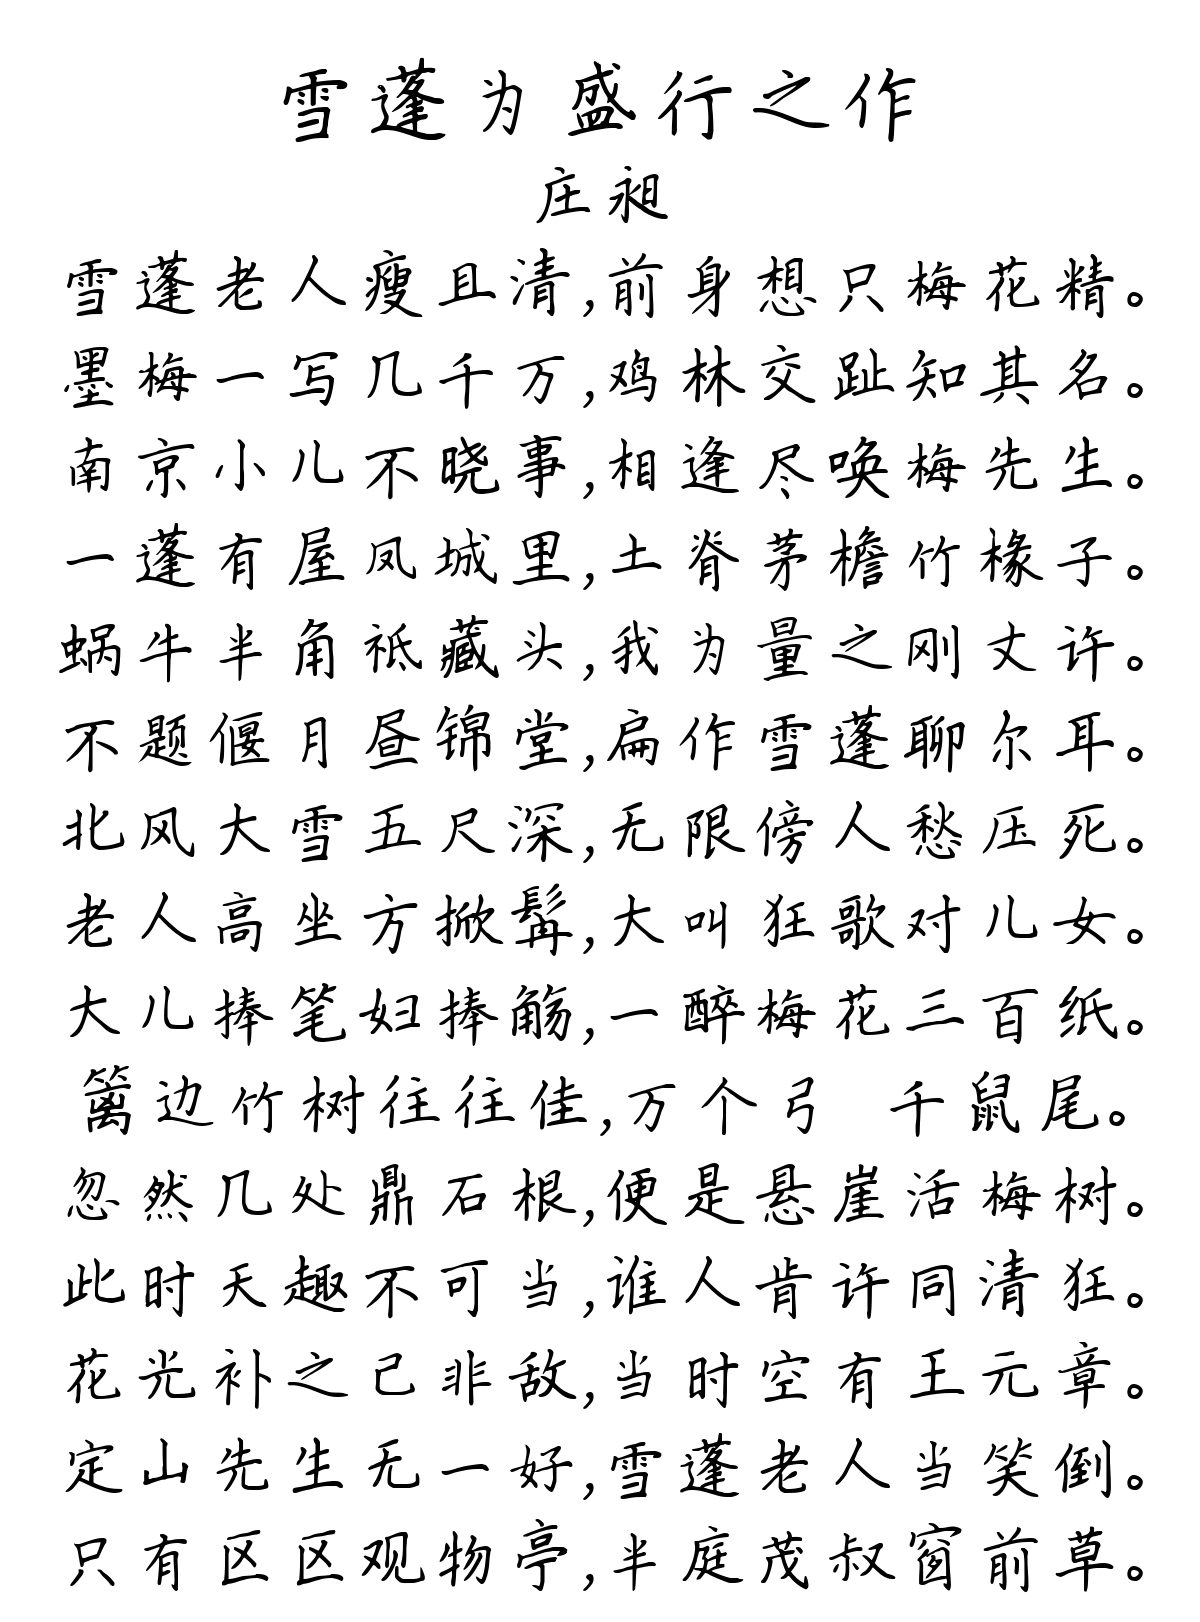 雪蓬为盛行之作
庄昶
雪蓬老人瘦且清,前身想只梅花精。
墨梅一写几千万,鸡林交趾知其名。
南京小儿不晓事,相逢尽唤梅先生。
一蓬有屋凤城里,土脊茅檐竹椽子。
蜗牛半角祗藏头,我为量之刚丈许。
不题偃月昼锦堂,扁作雪蓬聊尔耳。
北风大雪五尺深,无限傍人愁压死。
老人高坐方掀髯,大叫狂歌对儿女。
大儿捧笔妇捧觞,一醉梅花三百纸。
篱边竹树往往佳,万个弓 千鼠尾。
忽然几处鼎石根,便是悬崖活梅树。
此时天趣不可当,谁人肯许同清狂。
花光补之己非敌,当时空有王元章。
定山先生无一好,雪蓬老人当笑倒。
只有区区观物亭,半庭茂叔窗前草。